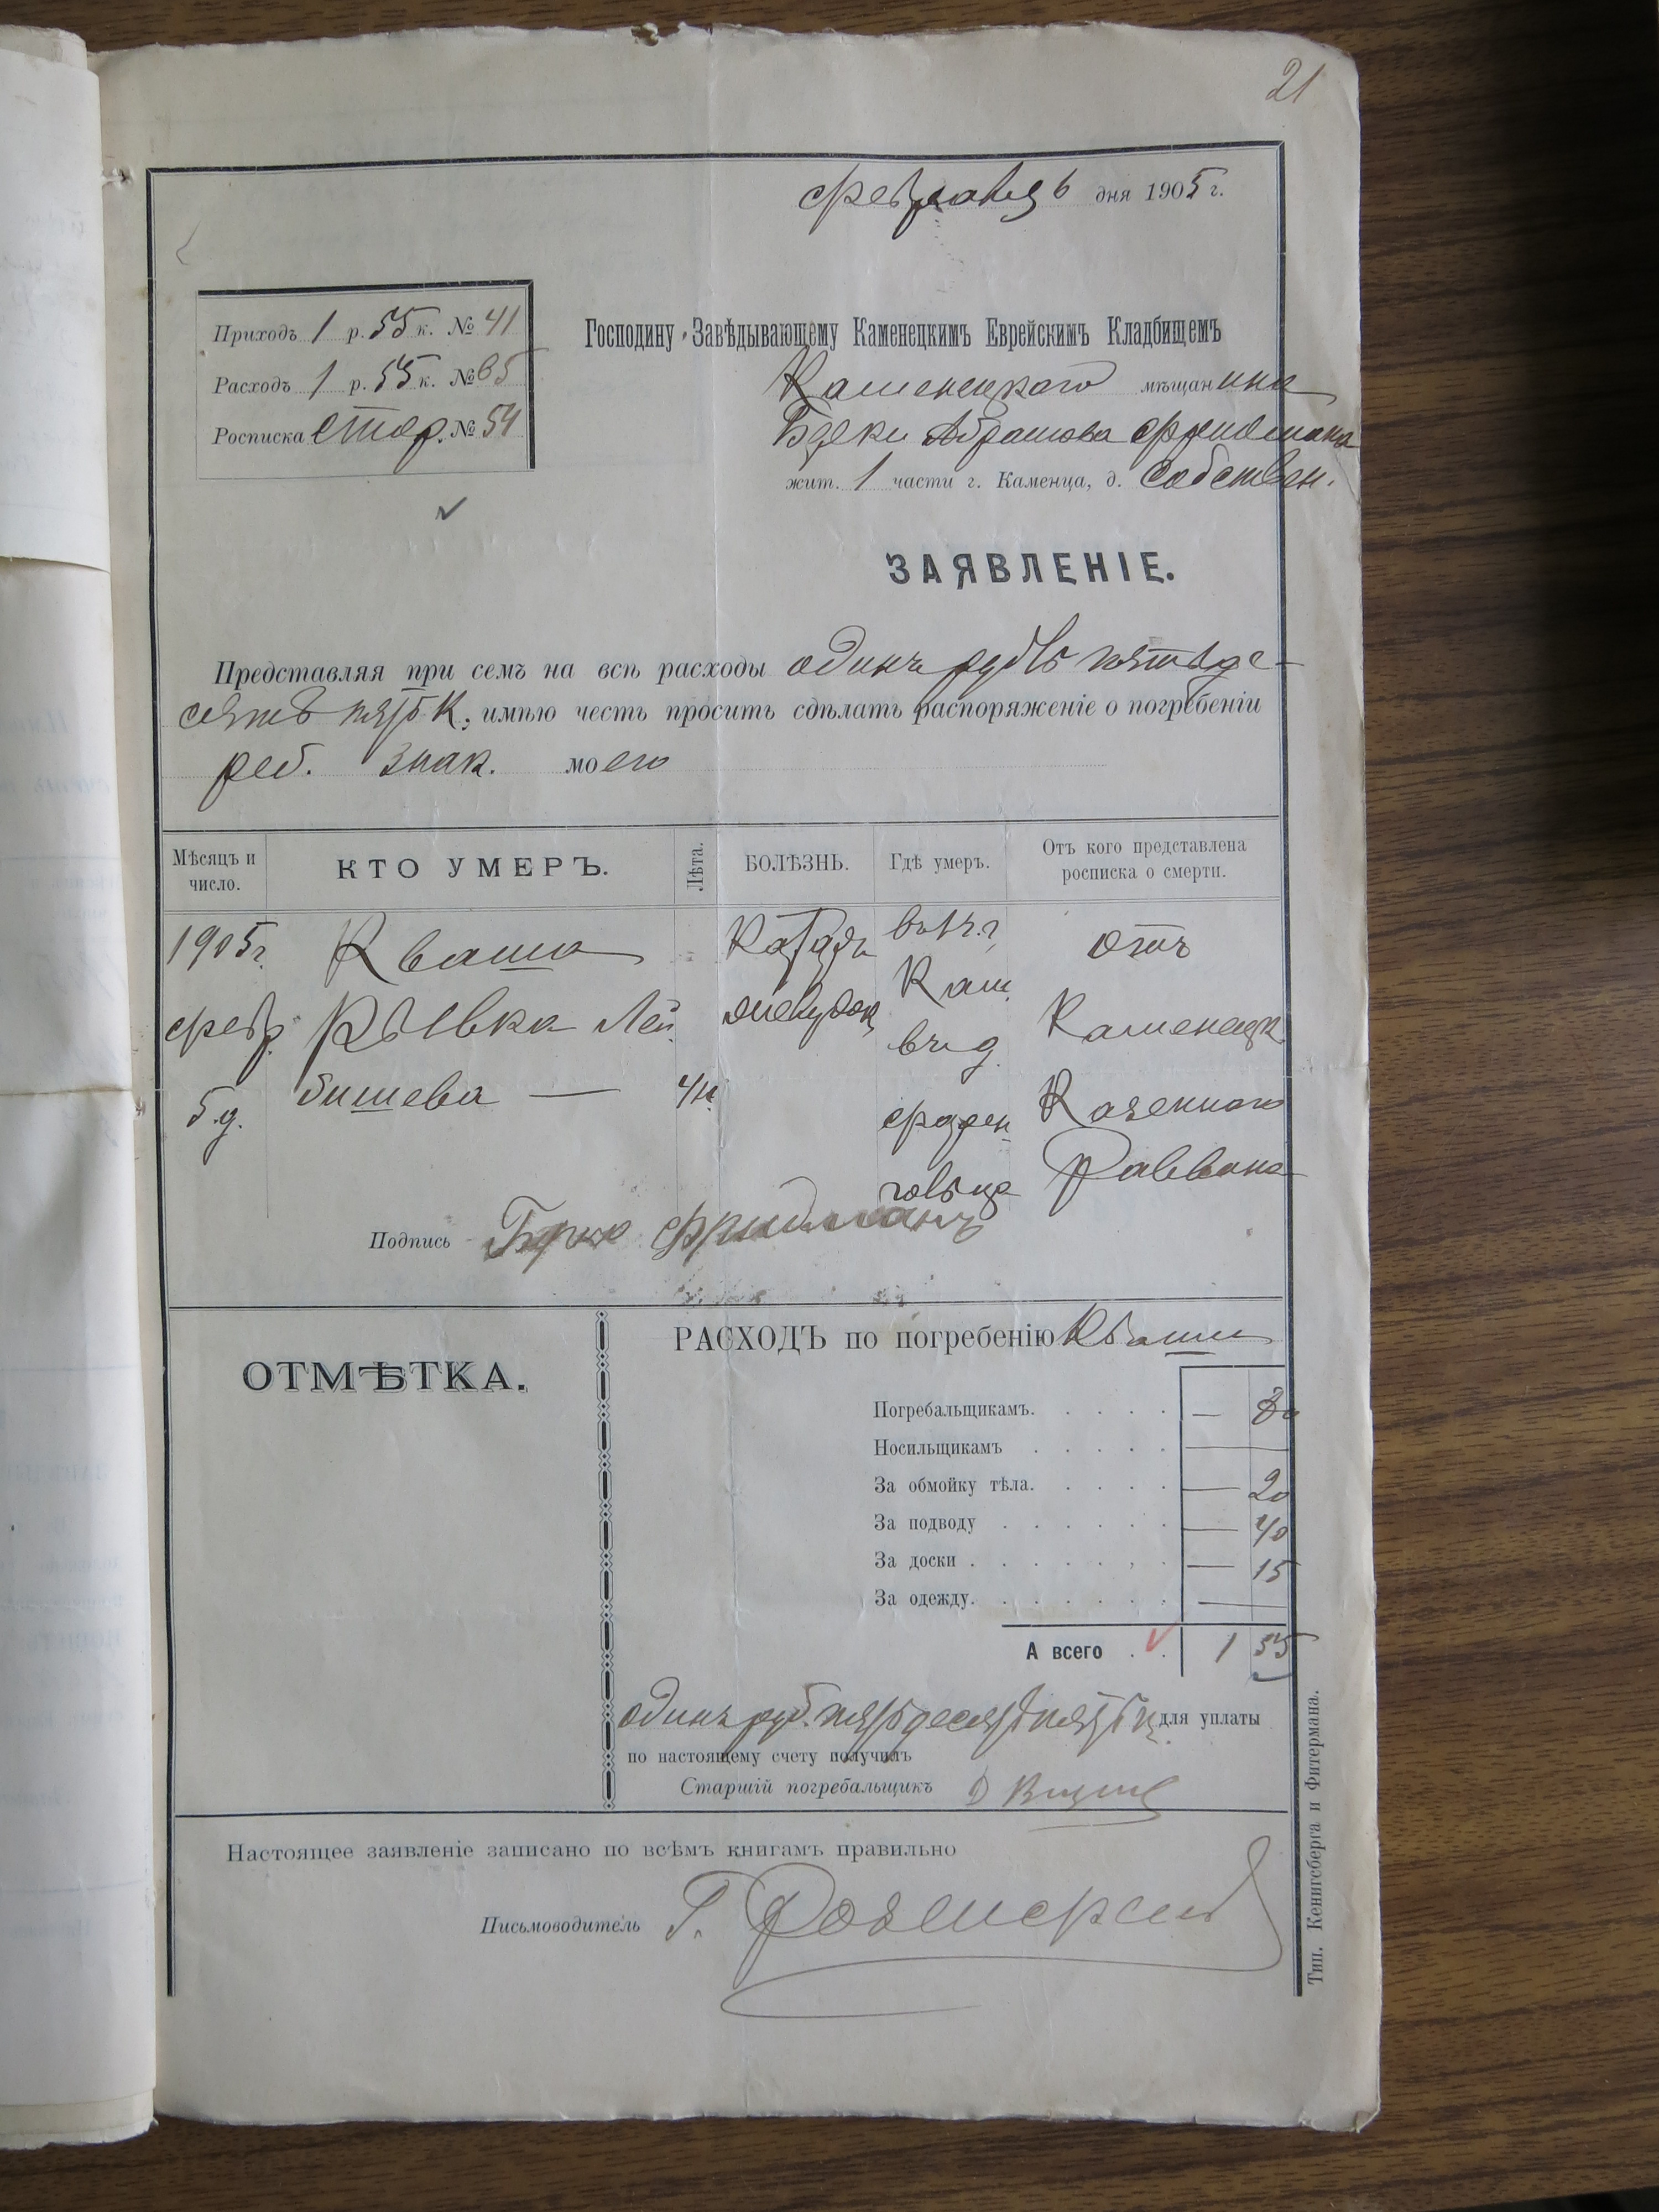 21
февраля 6 дня 1905 г.
Приходъ 1 р. 55 к. № 41
Расходъ 1 р. 55 к. № 65
Росписка стор. № 54
Господину Завѣдывающему Каменецкимъ Еврейскимъ Кладбищемъ
Каменецкого мѣщанина
Берки Абрамова Фридмана
жит. 1 части г. Каменца, д. Собствен.
ЗАЯВЛЕНІЕ.
Представляя при семъ на всѣ расходы одинъ рубль пятьде-
сятъ пять к. имѣю честь просить сдѣлать распоряженіе о погребеніи
реб. знак. моего
Мѣсяцъ и число.
КТО УМЕРЪ.
Лѣта.
БОЛѢЗНЬ.
Гдѣ умеръ.
Отъ кого представлена росписка о смерти.
1905 г. Кваша Катаръ въ 1 ч. г. отъ
февр. Рывка Лей желудк. Кам. Каменецк.
5 д. бишева — 4 н. въ д. Казенного
Раввина
Подпись Берко Фридманъ
ОТМѢТКА.
РАСХОДЪ по погребенію Кваши
Погребальщикамъ. — 80
Носильщикамъ —
За обмойку тѣла. — 20
За подводу — 40
За доски — 15
За одежду. —
А всего 1 55
одинъ руб. пятьдесятъ пять к. для уплаты
по настоящему счету получилъ
Старшій погребальщикъ
Настоящее заявленіе записано по всѣмъ книгамъ правильно
Письмоводитель Г.
Тип. Кенигсберга и Фитермана.